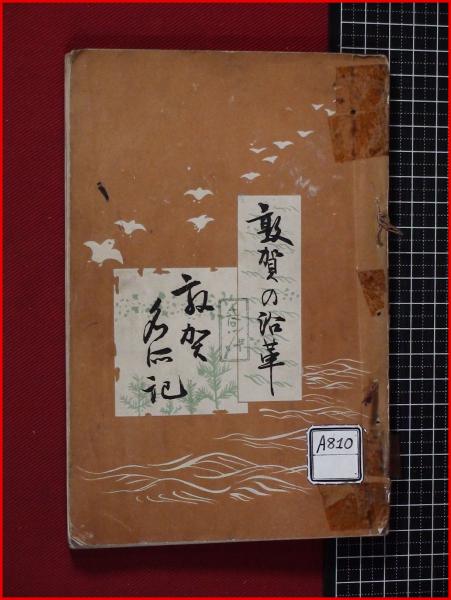 敦賀の沿革
敦賀
名所記
A810